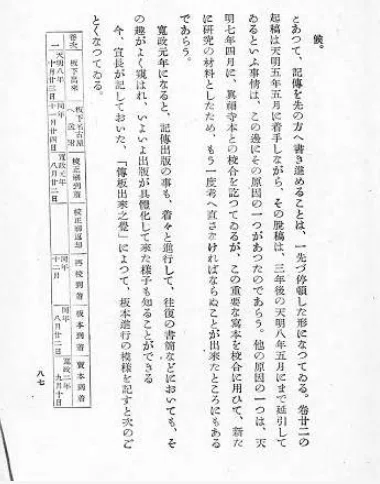 候。
とあつて、記傳を先の方へ書き進めることは、一先づ停頓した形になつてゐる。卷廿二の
起稿は天明五年五月に着手しながら、その脱稿は、三年後の天明八年五月にまで延引して
ゐるといふ事情は、この邊にその原因の一つがあつたのであらう。他の原因の一つは、天
明七年四月に、眞福寺本との校合を訖つてゐるが、この重要な寫本を校合に用ひて、新た
に研究の材料としたため、もう一度考へ直さなければならぬことが出來たところにもある
であらう。
寛政元年になると、記傳出版の事も、着々と進行して、往復の書簡などにおいても、そ
の趣がよく窺はれ、いよいよ出版が具體化して來た樣子も知ることができる
今、宣長が記しておいた、「傳板出來之覺」によつて、板本進行の模樣を記すと次のご
とくなつてゐる。
卷次 板下高來 板下名古屋へ 校正摺到着 校正摺返却 再校到着 板本到着 賣本到着
一 天明八年十月廿三日 同年十一月廿四日 寛政元年八月廿二日 同年十二月 同年九月廿二日 寛政二年九月十日
八七